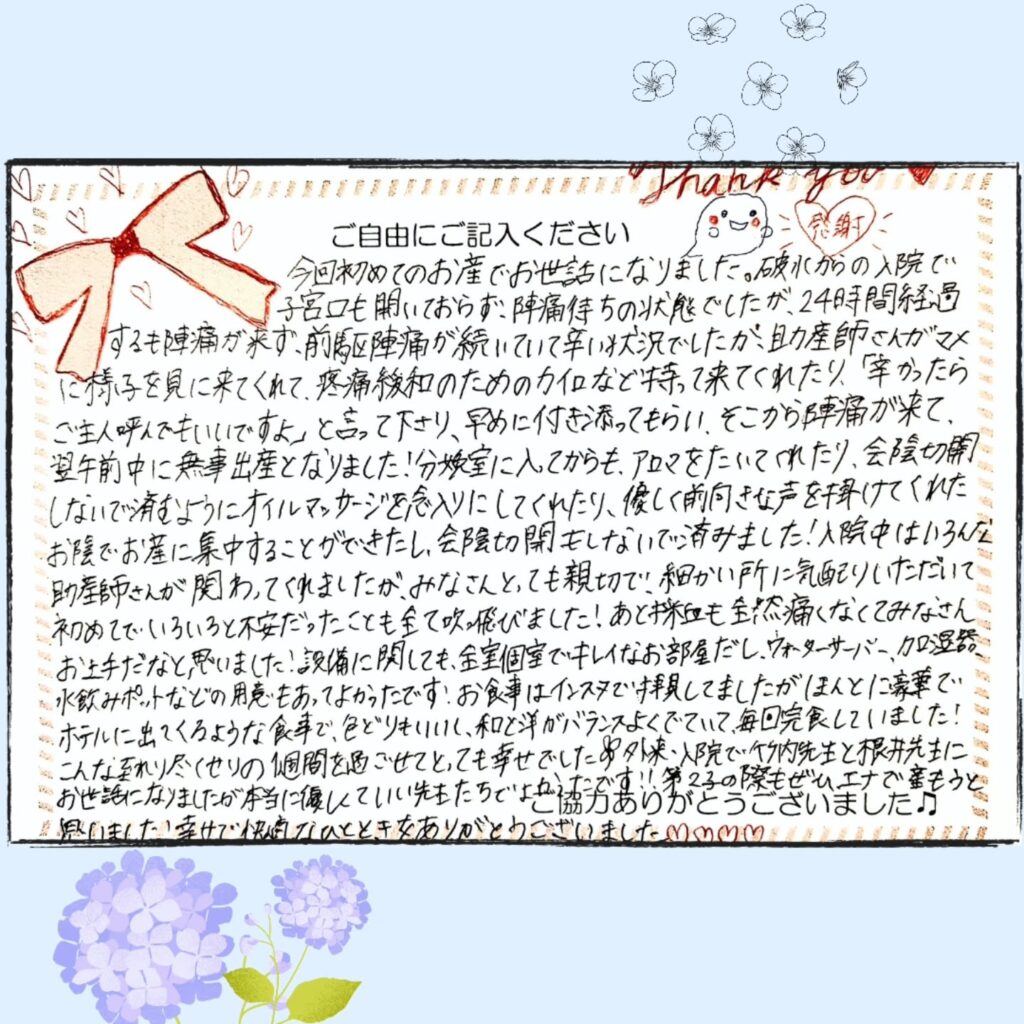 Thank you
感謝
ご自由にご記入ください
今回初めてのお産でお世話になりました。破水からの入院で
子宮口も開いておらず、陣痛待ちの状態でしたが、24時間経過
するも陣痛が来ず、前駆陣痛が続いていて辛い状況でしたが、助産師さんがマメ
に様子を見に来てくれて、疼痛緩和のためのカイロなど持って来てくれたり、「辛かったら
ご主人呼んでもいいですよ」と言って下さり、早めに付き添ってもらい、そこから陣痛が来て、
翌午前中に無事出産となりました!分娩室に入ってからも、アロマをたいてくれたり、会陰切開
しないで済むようにオイルマッサージを念入りにしてくれたり、優しく前向きな声を掛けてくれた
お陰でお産に集中することができたし、会陰切開もしないで済みました!入院中はいろんな
助産師さんが関わってくれましたが、みなさんとっても親切で、細かい所に気配りいただいて
初めてでいろいろと不安だったことも全て吹っ飛びました!あと採血も全然痛くなくてみなさん
お上手だなと思いました!設備に関しても、全室個室でキレイなお部屋だし、ウォーターサーバー、加湿器
水飲みポットなどの用意もあってよかったです!お食事はインスタで拝見してましたがほんとに豪華で
ホテルに出てくるような食事で、色どりもいいし、和と洋がバランスよくでていて、毎回完食していました!
こんな至れり尽くせりの1週間を過ごせてとっても幸せでした 外来、入院で竹内先生と根井先生に
お世話になりましたが本当に優しくていい先生たちでよかったです!!第2子の際もぜひエナで産もうと
ご協力ありがとうございました♫
思いました!幸せで快適なひとときをありがとうございました♡♡♡♡